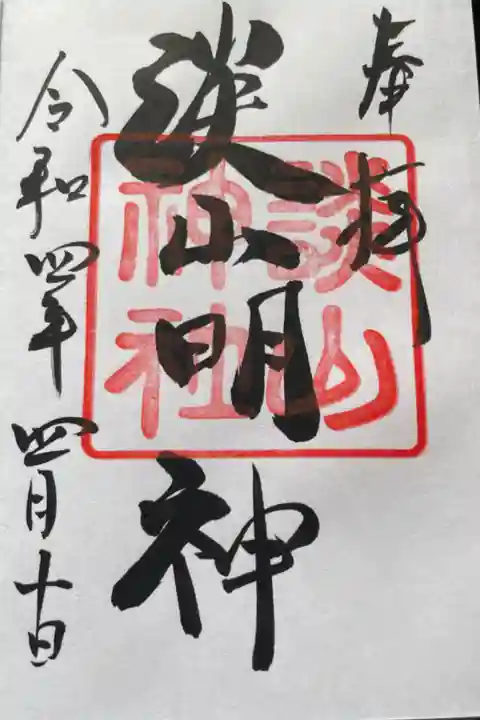 奉拝
談山明神
談山
神社
令和四年四月十日